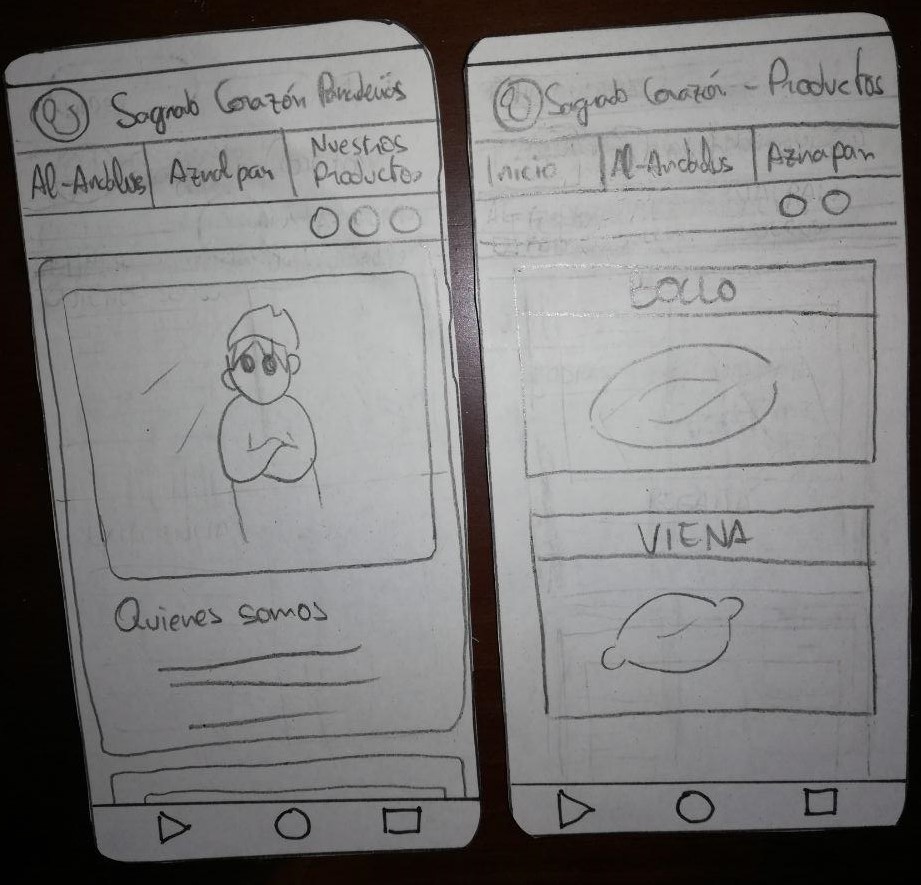 Sagrado Corazón Panaderías
Al-Andalus
Aznalpan
Nuestros
Productos
Quienes somos
Sagrado Corazón - Productos
Inicio
Al-Andalus
Aznapan
BOLLO
VIENA